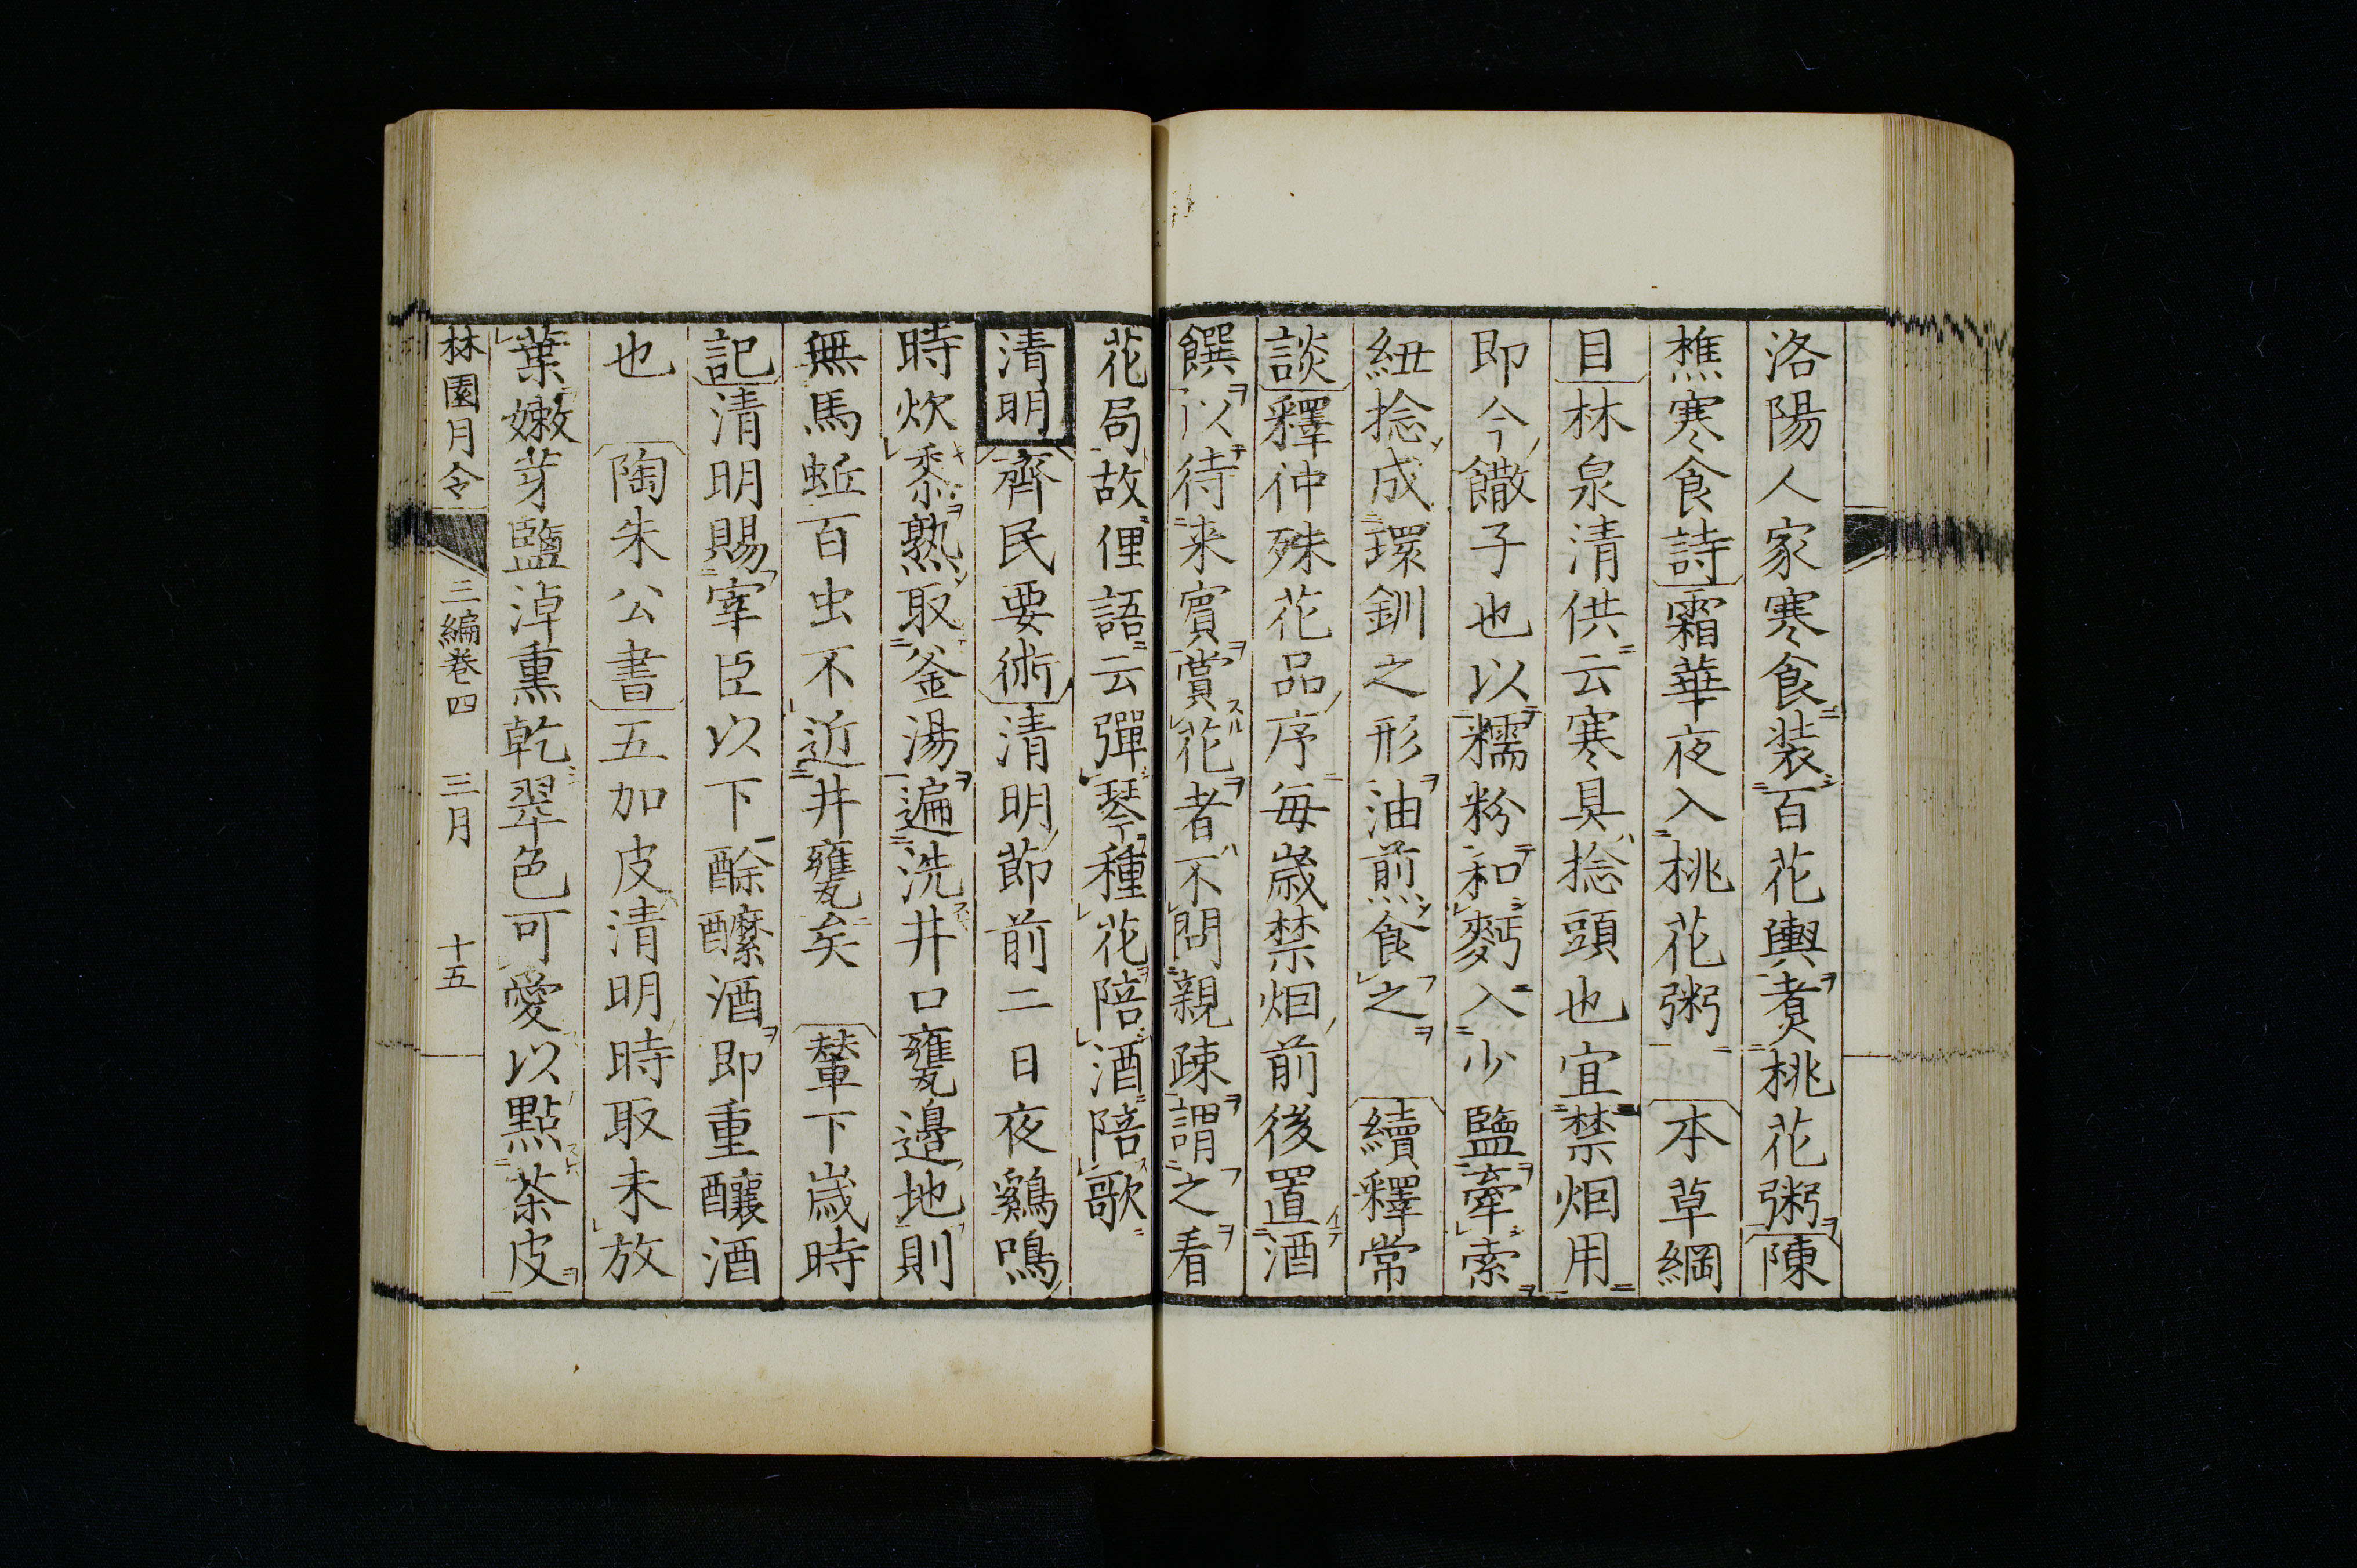 洛陽人家寒食装百花輿煮桃花粥陳
樵寒食詩霜華夜入桃花粥 本草綱
目林泉清供云寒具捻頭也宜禁烟用
即今饊子也以糯粉和麪入少鹽牽索
紐捻成環釧之形油煎食之 續釋常
談釋仲殊花品序毎歳禁烟前後置酒
饌以待来賓賞花者不問親疎謂之看
花局故俚語云彈琴種花陪酒陪歌
清明齊民要術清明節前二日夜鷄鳴
時炊黍熟取釜湯遍洗井口甕邊地則
無馬蚿百虫不近井甕矣 輦下歳時
記清明賜宰臣以下酴醿酒即重釀酒
也 陶朱公書五加皮清明時取未放
葉嫩芽鹽淖熏乾翠色可愛以點茶皮
林園月令 三編巻四 三月 十五